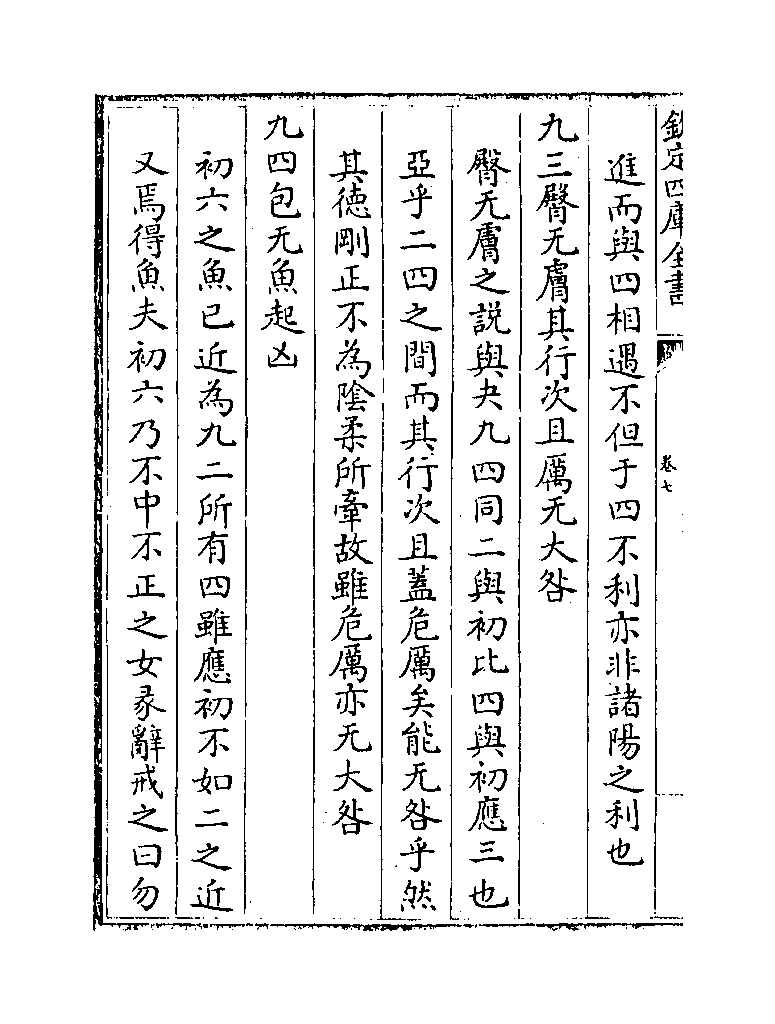 欽定四庫全書
卷七
進而與四相遇不但于四不利亦非諸陽之利也
九三臀无膚其行次且厲无大咎
臀无膚之説與夬九四同二與初比四與初應三也
亞乎二四之間而其行次且蓋危厲矣能无咎乎然
其德剛正不為陰柔所牽故雖危厲亦无大咎
九四包无魚起凶
初六之魚已近為九二所有四雖應初不如二之近
又焉得魚夫初六乃不中不正之女彖辭戒之曰勿